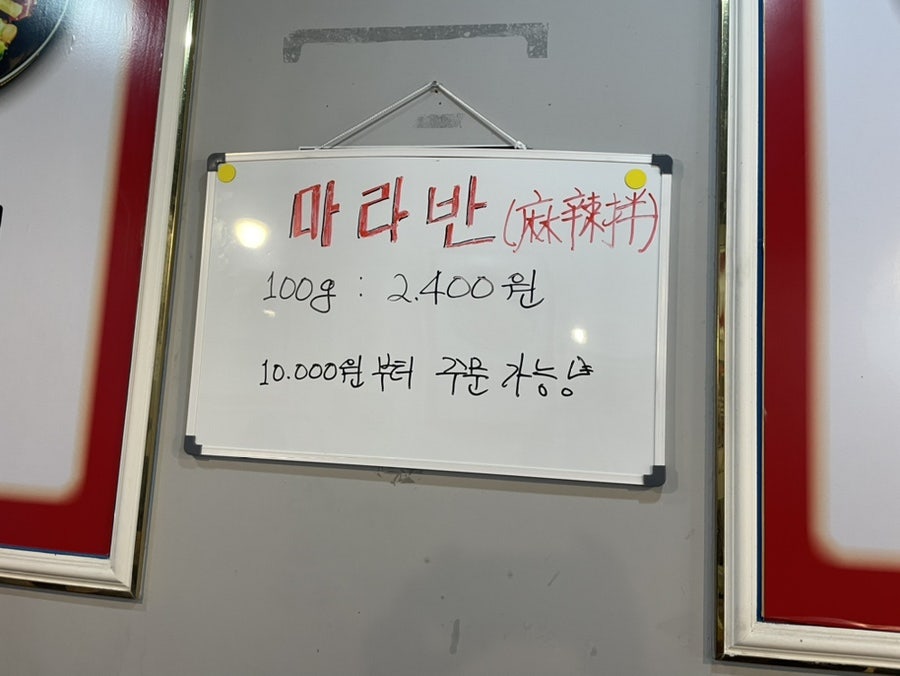 마라반(麻辣拌)
100g : 2.400원
10.000원부터 주문 가능